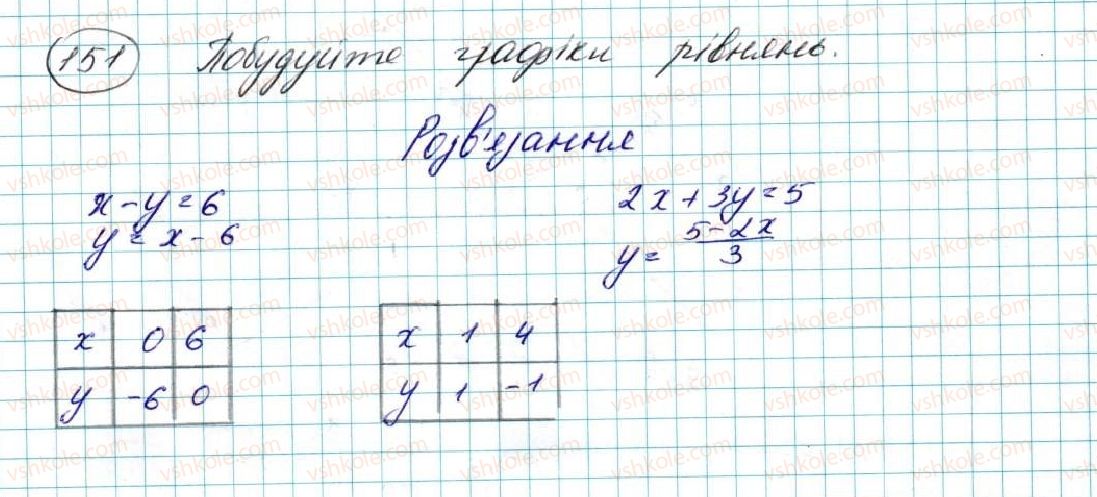 151 Побудуйте графіки рівнянь.
Розв'язання
x - y = 6
y = x - 6
2x + 3y = 5
y = (5 - 2x)/3
x 0 6
y -6 0
x 1 4
y 1 -1
vshkole.com